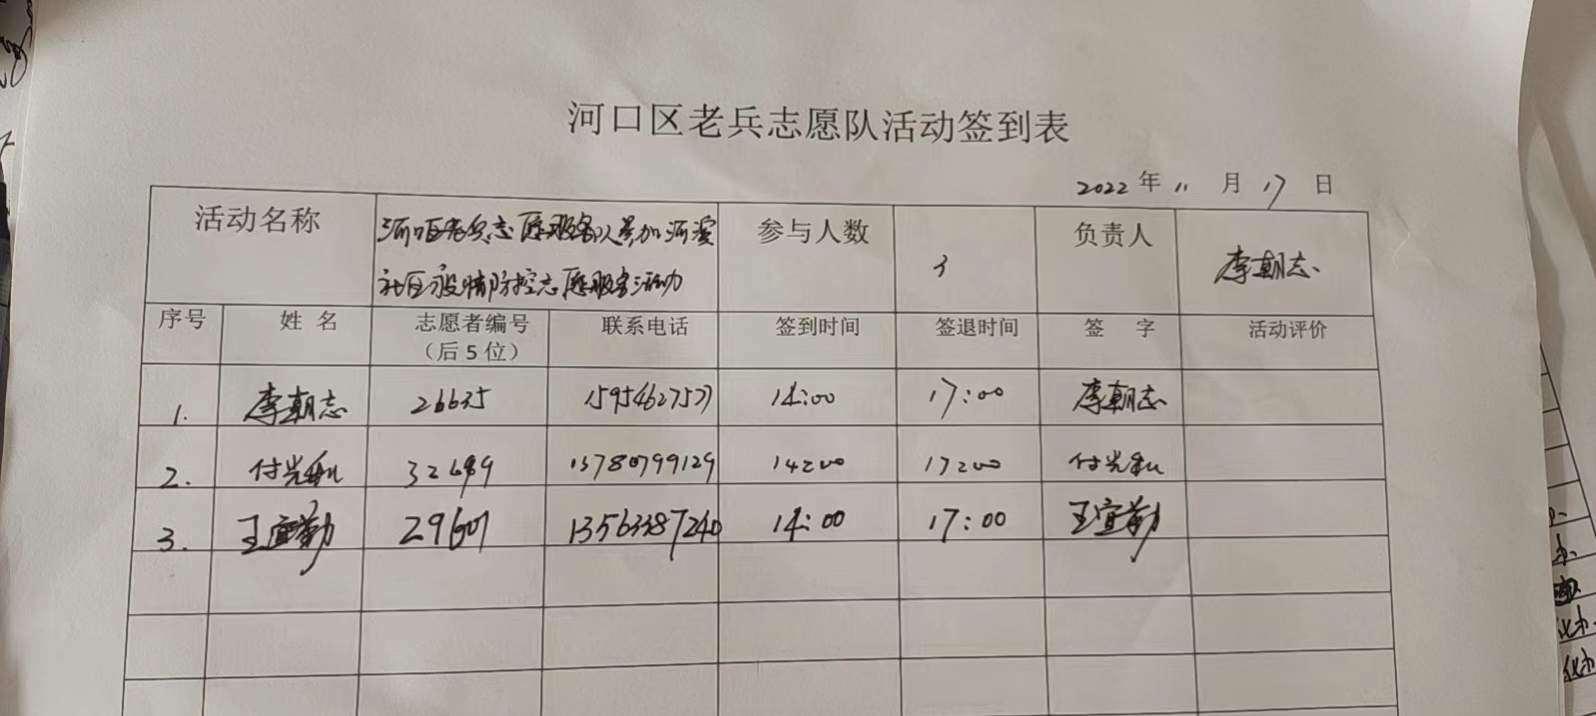 河口区老兵志愿队活动签到表
2022年 11 月 17 日
活动名称 河口区老兵志愿服务队参加河滨 参与人数 3 负责人 李朝志
社区疫情防控志愿服务活动
序号 姓名 志愿者编号 联系电话 签到时间 签退时间 签字 活动评价
（后5位）
1. 李朝志 26635 14:00 17:00 李朝志
2. 付光和 13780799129 14:00 17:00 付光和
3. 王宜勤 29607 13563387240 14:00 17:00 王宜勤